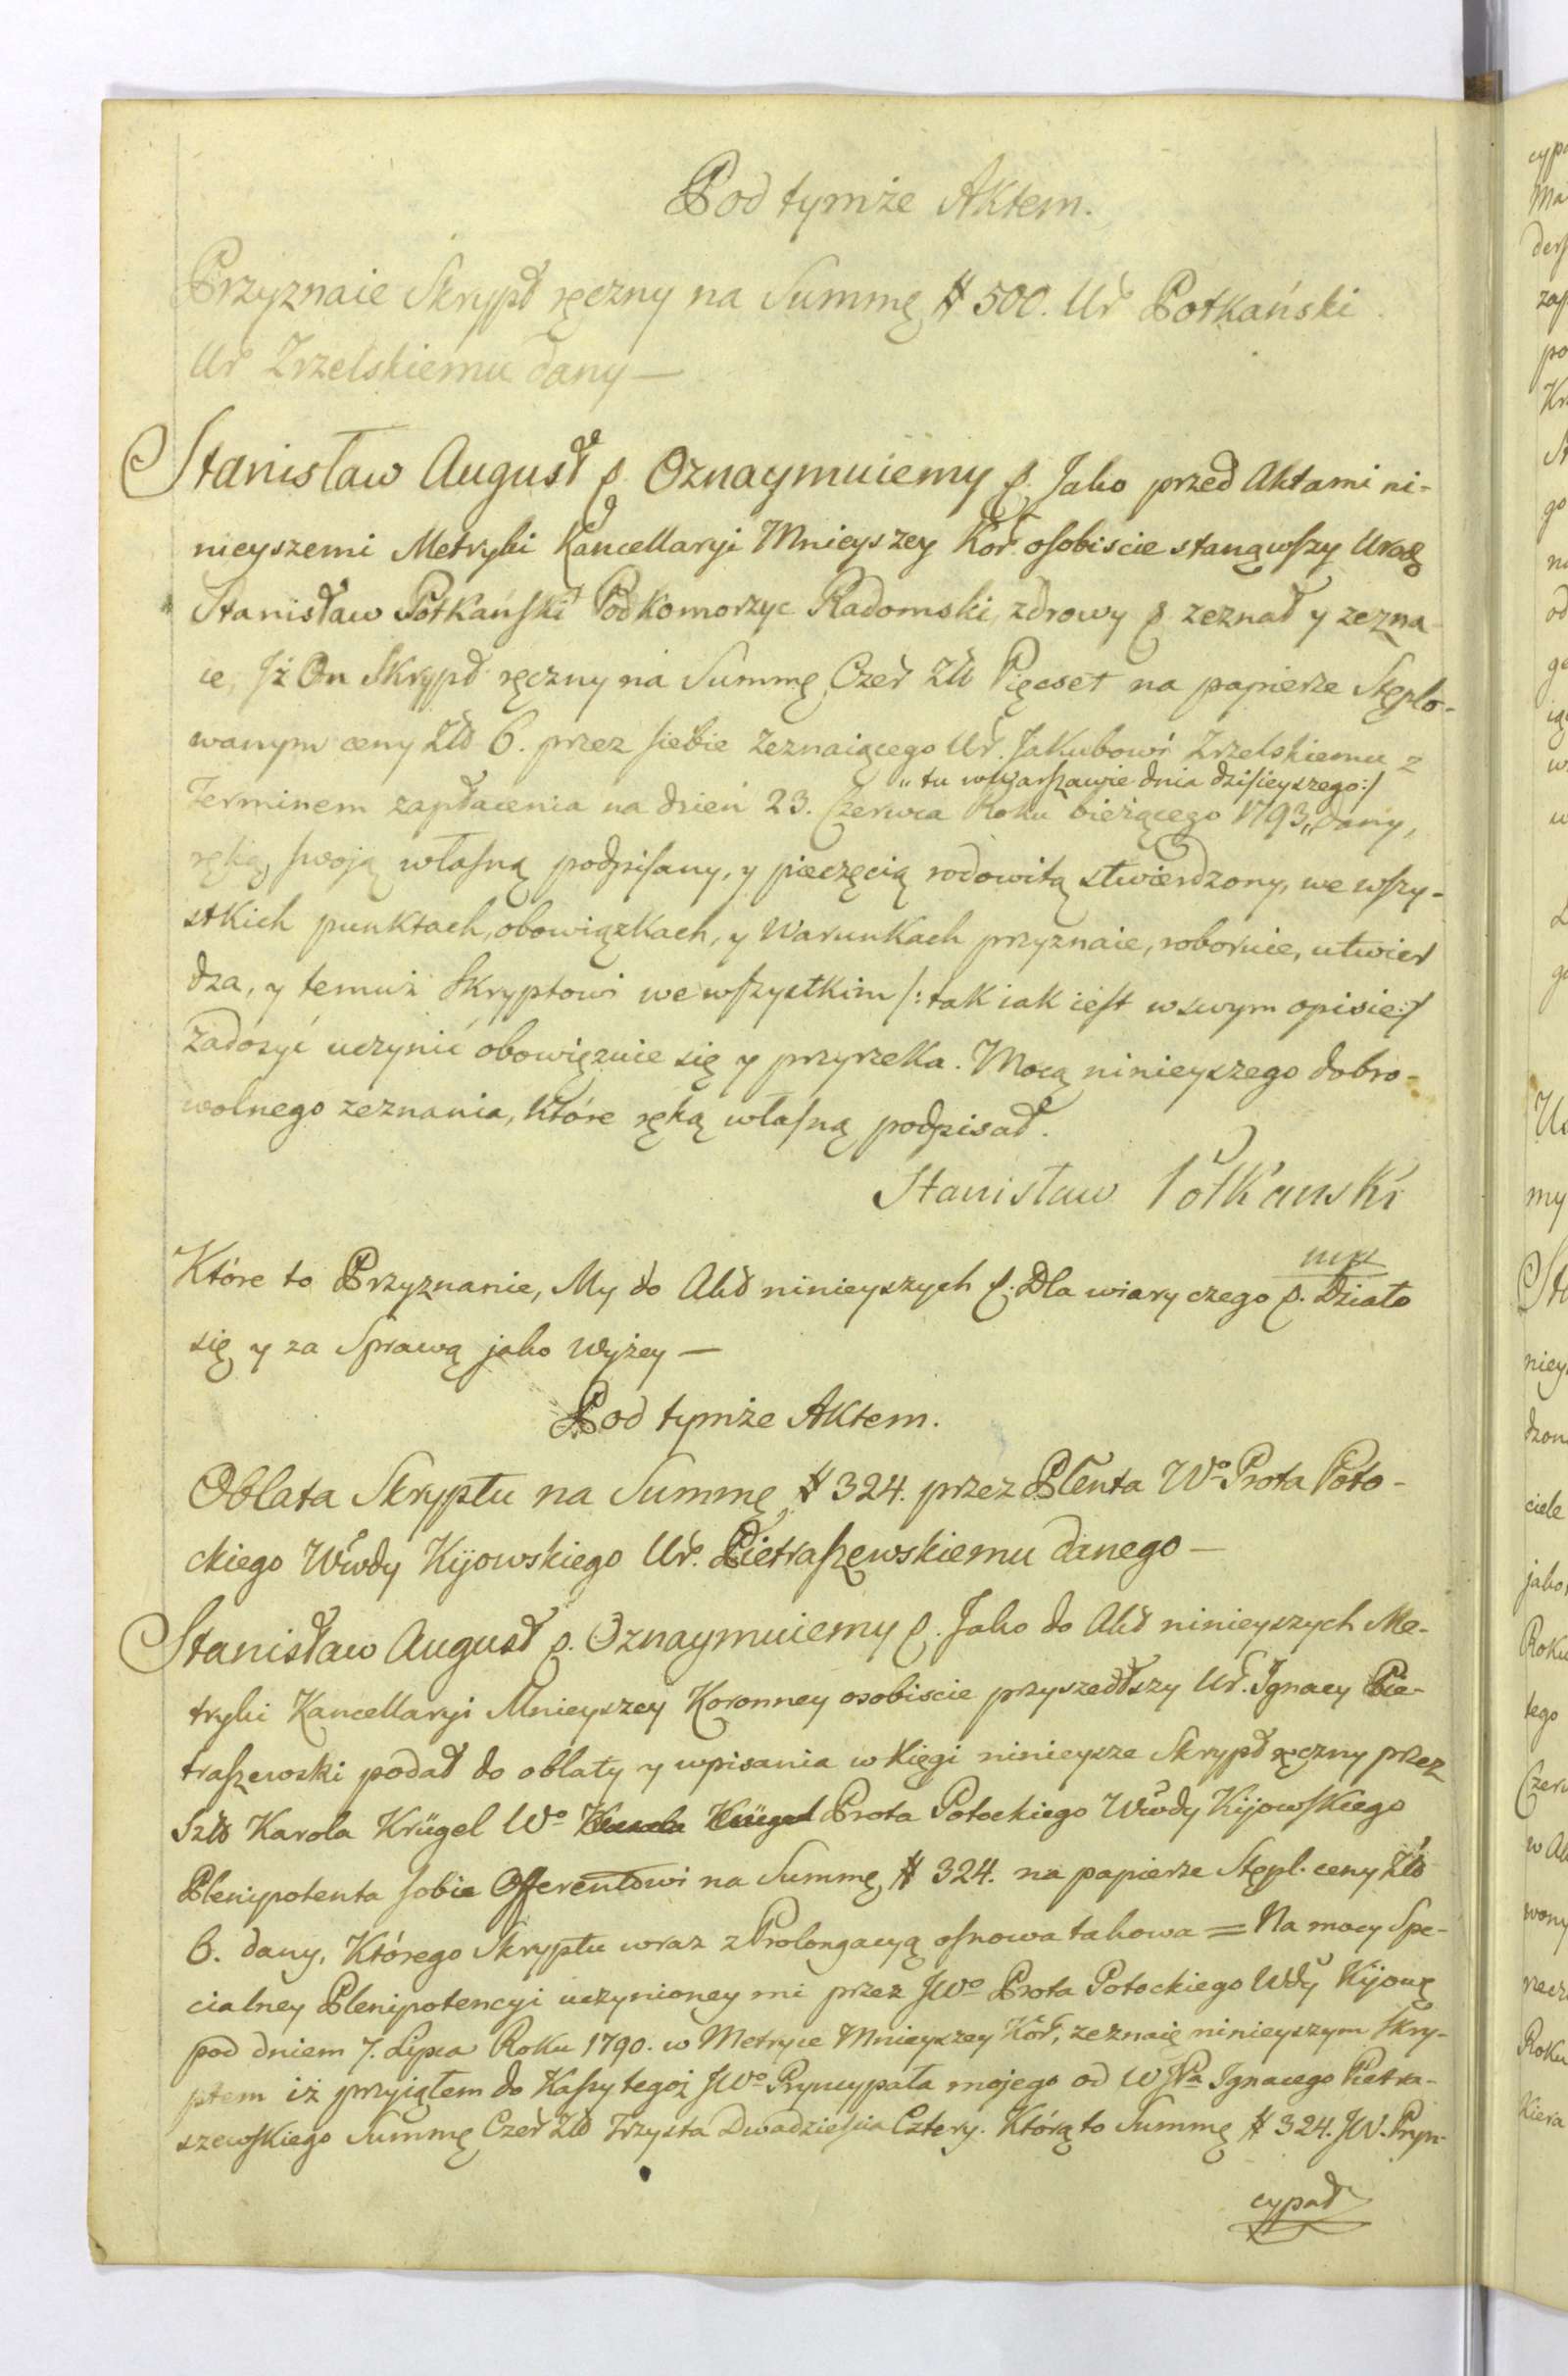 Pod tymże Aktem.
Przyznaie Skrypt ręczny na Summę # 500. Ur Potkański
Ur Zrzelskiemu dany —
Stanisław August p. Oznaymuiemy p. Jako przed Aktami ni-
nieyszemi Metryki Kancellaryi Mnieyszey Kor. osobiscie stanąwszy Urodz
Stanisław Potkański Podkomorzyc Radomski, zdrowy p zeznał y zezna-
ie, Jż On Skrypt ręczny na Summę Czer Zł Pięcset na papierze Stęplo-
wanym ceny Zł 6. przez siebie zeznaiącego Ur. Jakubowi Zrzelskiemu z
„ tu w Warszawie dnia dzisieyszego :/
Terminem zapłacenia na dzień 23. Czerwca Roku bieżącego 1793, „ dany,
ręką swoią własną podpisany, y pieczęcią rodowitą stwierdzony, we wszy-
stkich punktach, obowiązkach, y Warunkach przyznaie, roboruie, utwier
dza, y temuż Skryptowi we wszystkim /: tak iak iest w swym opisie :/
zadosyć uczynić obowięzuie się y przyrzeka. Mocą ninieyszego dobro-
wolnego zeznania, które ręką własną podpisał.
Stanisław Potkanski
mp
Które to Przyznanie, My do Akt ninieyszych p. Dla wiary czego p. Działo
się y za Sprawą jako wyżey —
Pod tymże Aktem.
Oblata Skryptu na Summę # 324. przez Plenta Wo Prota Poto-
ckiego Wwdy Kijowskiego Ur. Pietraszewskiemu danego —
Stanisław August p. Oznaymuiemy p. Jako do Akt ninieyszych Me-
tryki Kancellaryi Mnieyszey Koronney osobiscie przyszedłszy Ur. Jgnacy Pie-
traszewski podał do oblaty y wpisania w Xięgi ninieysze Skrypt ręczny przez
Szl Karola Krügel Wo Karola Krügel Prota Potockiego Wwdy Kijowskiego
Plenipotenta sobie Offerentowi na Summę # 324. na papierze Stępl. ceny Zł
6. dany, Którego Skryptu wraz z Prolongacyą osnowa takowa = Na mocy Spe-
cialney Plenipotencyi uczynioney mi przez JWo Prota Potockiego Wdy Kijows
pod dniem 7. Lipca Roku 1790. w Metryce Mnieyszey Kor, zeznaię ninieyszym skry-
ptem iż przyiąłem do Kassy tegoż JWo Pryncypała mojego od WJPa Jgnacego Pietra-
szewskiego Summę Czer Zł Trzysta Dwadziescia Cztery. Którą to Summę # 324. JW. Pryn-
cypał